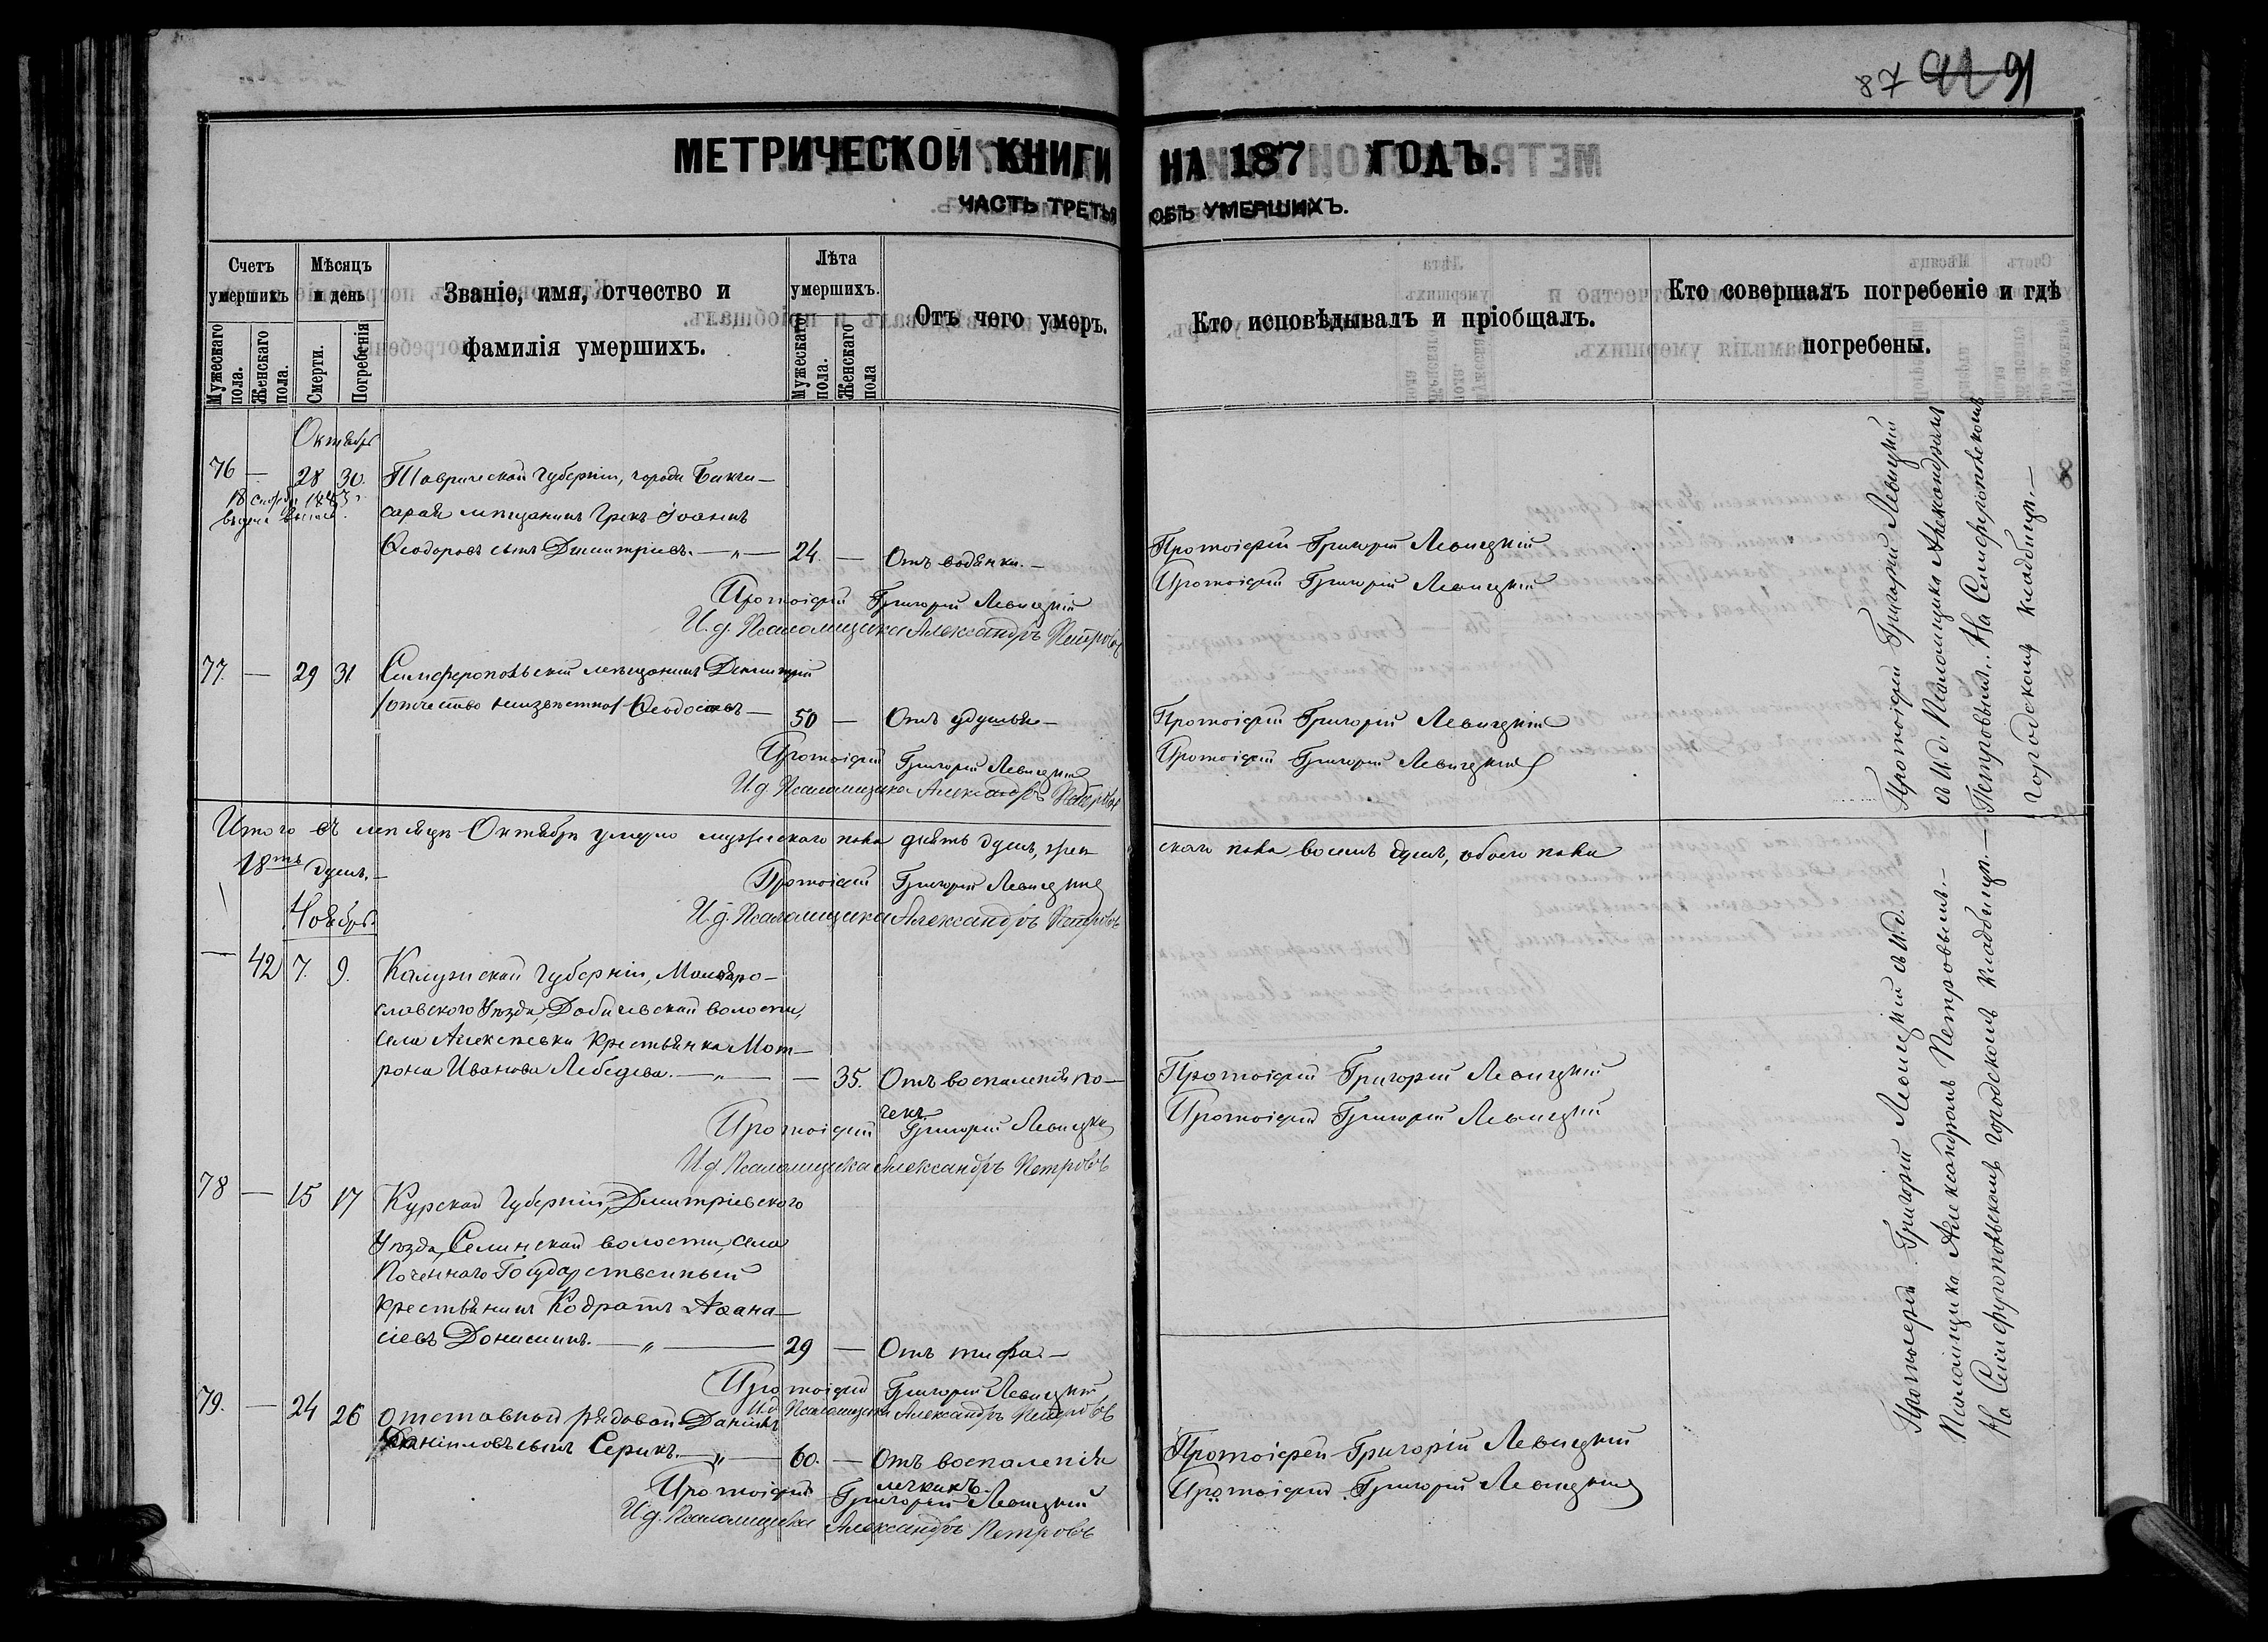 87 91
МЕТРИЧЕСКОЙ КНИГИ НА 187 ГОДЪ.
ЧАСТЬ ТРЕТЬЯ ОБЪ УМЕРШИХЪ.
Счетъ умершихъ
Мужескаго пола.
Женскаго пола.
Мѣсяцъ и день
Смерти.
Погребенія
Званіе, имя, отчество и фамилія умершихъ.
Лѣта умершихъ.
Мужескаго пола.
Женскаго пола
Отъ чего умеръ.
Кто исповѣдывалъ и пріобщалъ.
Кто совершалъ погребеніе и гдѣ погребены.
Октябрь
76 — 28 30. Таврической губерніи, города Бакчи-
сарая мѣщанинъ Грекъ Іоаннъ
Ѳеодоровъ сынъ Димитріевъ. — „ — 24. — Отъ водянки. — Протоіерей Григорій Левицкій
Протоіерей Григорій Левицкій
Протоіерей Григорій Левицкій
И. д. Псаломщика Александръ Петровъ
77. — 29 31 Симферопольскій мѣщанинъ Димитрій
/отчество неизвѣстно/ Ѳеодосіевъ — 50 — Отъ удушья — Протоіерей Григорій Левицкій
Протоіерей Григорій Левицкій
Протоіерей Григорій Левицкій
И. д. Псаломщика Александръ Петровъ
Протоіерей Григорій Левицкій
съ И. д. Псаломщика Александромъ
Петровымъ. На Симферопольскомъ
городскомъ кладбищѣ. —
Итого въ мѣсяцѣ Октябрѣ умерло мужескаго пола десять душъ, жен-
скаго пола восемь душъ, обоего пола
18ть душъ. —
Протоіерей Григорій Левицкій
И. д. Псаломщика Александръ Петровъ
Ноябрь.
— 42 7. 9. Калужской губерніи, Малояро-
славскаго Уѣзда, волости,
села Алексѣевки крестьянка Мот-
рона Иванова Лебедева. — „ — — 35. Отъ воспаленія по-
чекъ
Протоіерей Григорій Левицкій
Протоіерей Григорій Левицкій
Протоіерей Григорій Левицкій
И. д. Псаломщика Александръ Петровъ
78 — 15 17 Курской губерніи, Дмитріевскаго
Уѣзда, Селинской волости, села
Поченнаго Государственный
крестьянинъ Кодратъ Аѳана-
сіевъ Донишинъ. — „ — 29 — Отъ тифа. —
Протоіерей Григорій Левицкій
И. д. Псаломщика Александръ Петровъ
79. — 24 26 Отставной рядовой Даніилъ
Даніиловъ сынъ Серикъ. — „ — 60. — Отъ воспаленія
легкихъ.
Протоіерей Григорій Левицкій
Протоіерей Григорій Левицкій
Протоіерей Григорій Левицкій
И. д. Псаломщика Александръ Петровъ
Протоіерей Григорій Левицкій съ И. д.
Псаломщика Александромъ Петровымъ. —
На Симферопольскомъ городскомъ кладбищѣ. —